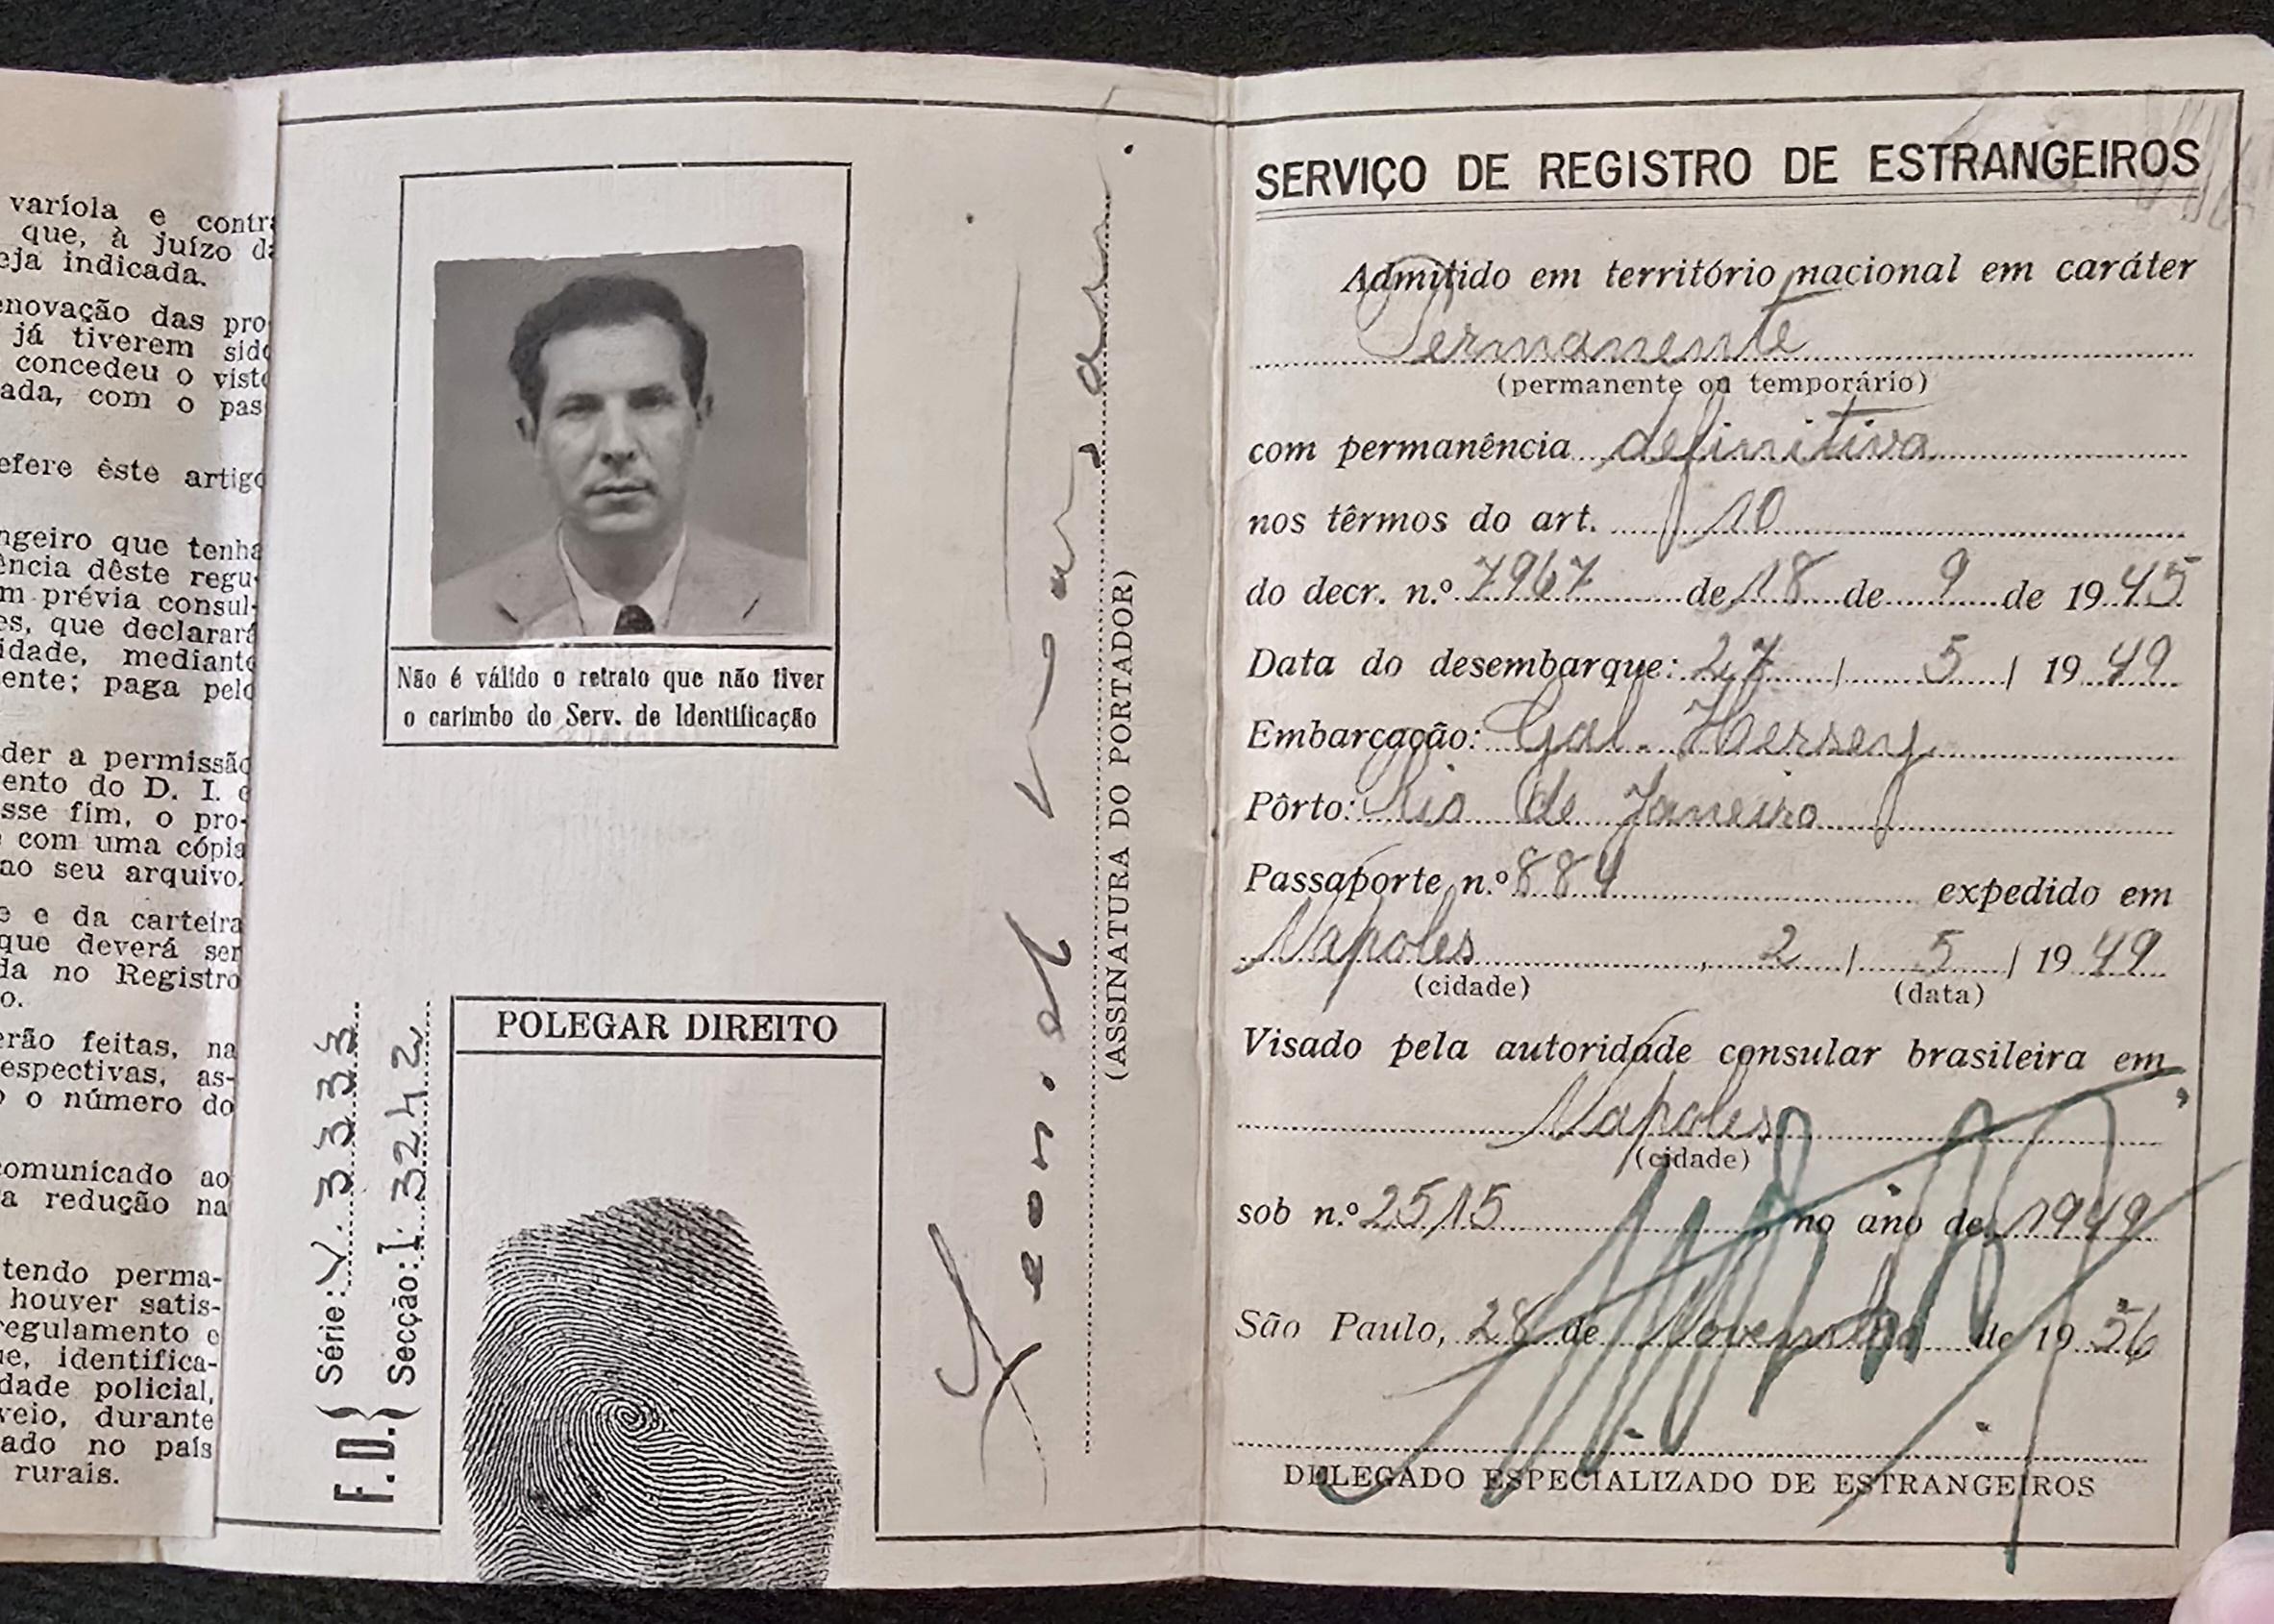 varíola e contra
que, à juízo da
eja indicada.
enovação das pro-
já tiverem sido
concedeu o visto
ada, com o pas
efere êste artigo
ngeiro que tenha
ência dêste regu-
m prévia consul-
es, que declarará
idade, mediante
ente; paga pelo
der a permissão
ento do D. I. e
sse fim, o pro-
com uma cópia
ao seu arquivo.
e e da carteira
que deverá ser
da no Registro
o.
erão feitas, na
espectivas, as-
o o número do
comunicado ao
a redução na
tendo perma-
houver satis-
regulamento e
ue, identifica-
dade policial,
veio, durante
ado no país
rurais.
Não é válido o retrato que não tiver
o carimbo do Serv. de Identificação
F.D. } Série: V. 3333
Secção: I. 3242
POLEGAR DIREITO
(ASSINATURA DO PORTADOR)
SERVIÇO DE REGISTRO DE ESTRANGEIROS
Admitido em território nacional em caráter
Permanente
(permanente ou temporário)
com permanência definitiva
nos têrmos do art. 10
do decr. n.º 7967 de 18 de 9 de 1945
Data do desembarque: 27 / 5 / 1949
Embarcação: Gal. Hersey
Pôrto: Rio de Janeiro
Passaporte n.º 884 expedido em
Napoles, 2 / 5 / 1949
(cidade) (data)
Visado pela autoridade consular brasileira em
Napoles
(cidade)
sob n.º 2515 no ano de 1949
São Paulo, 28 de Novembro de 1956
DELEGADO ESPECIALIZADO DE ESTRANGEIROS